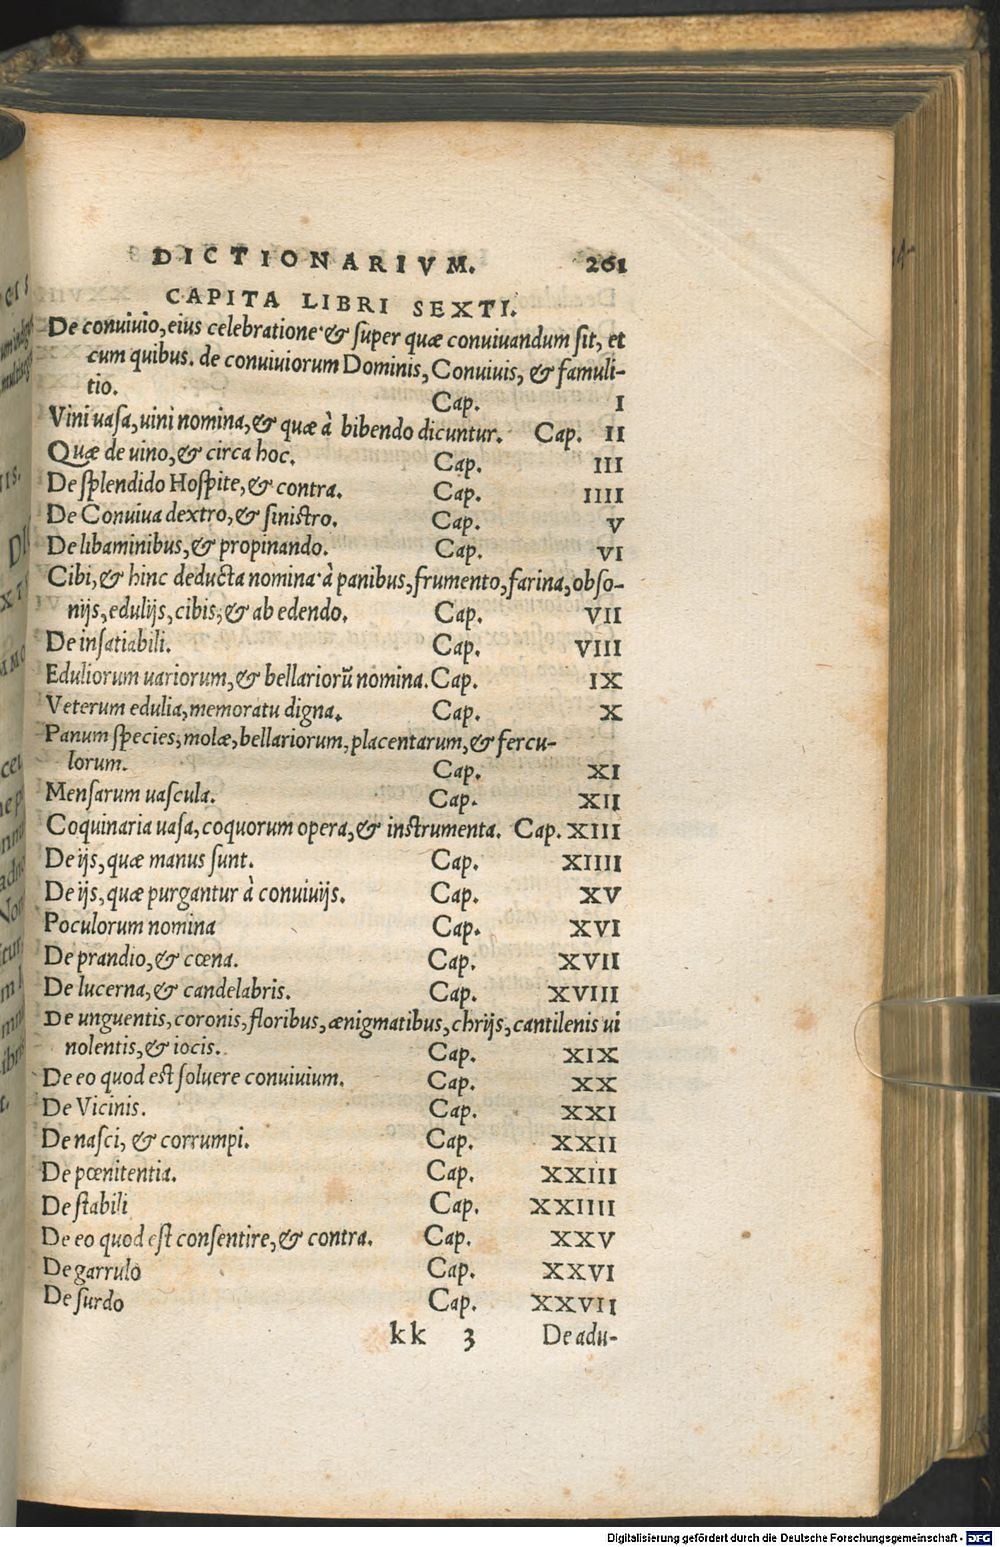 DICTIONARIVM. 261
CAPITA LIBRI SEXTI.
De conuiuio, eius celebratione & super quæ conuiuandum sit, et
cum quibus. de conuiuiorum Dominis, Conuiuis, & famuli-
tio. Cap. I
Vini uasa, uini nomina, & quæ à bibendo dicuntur. Cap. II
Quæ de uino, & circa hoc. Cap. III
De splendido Hospite, & contra. Cap. IIII
De Conuiua dextro, & sinistro. Cap. V
De libaminibus, & propinando. Cap. VI
Cibi, & hinc deducta nomina à panibus, frumento, farina, obso-
nijs, edulijs, cibis, & ab edendo. Cap. VII
De insatiabili. Cap. VIII
Eduliorum uariorum, & bellariorũ nomina. Cap. IX
Veterum edulia, memoratu digna. Cap. X
Panum species, molæ, bellariorum, placentarum, & fercu-
lorum. Cap. XI
Mensarum uascula. Cap. XII
Coquinaria uasa, coquorum opera, & instrumenta. Cap. XIII
De ijs, quæ manus sunt. Cap. XIIII
De ijs, quæ purgantur à conuiuijs. Cap. XV
Poculorum nomina Cap. XVI
De prandio, & cœna. Cap. XVII
De lucerna, & candelabris. Cap. XVIII
De unguentis, coronis, floribus, ænigmatibus, chrijs, cantilenis ui
nolentis, & iocis. Cap. XIX
De eo quod est soluere conuiuium. Cap. XX
De Vicinis. Cap. XXI
De nasci, & corrumpi. Cap. XXII
De pœnitentia. Cap. XXIII
De stabili Cap. XXIIII
De eo quod est consentire, & contra. Cap. XXV
De garrulo Cap. XXVI
De surdo Cap. XXVII
kk 3 De adu-
Digitalisierung gefördert durch die Deutsche Forschungsgemeinschaft - DFG